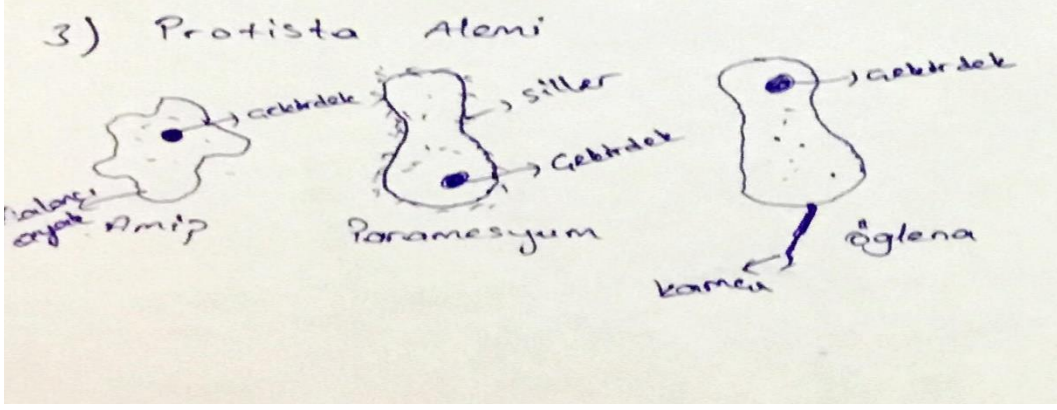 3) Protista Alemi
Çekirdek
yalancı
ayak
Amip
siller
Çekirdek
Paramesyum
Çekirdek
kamçı
öglena